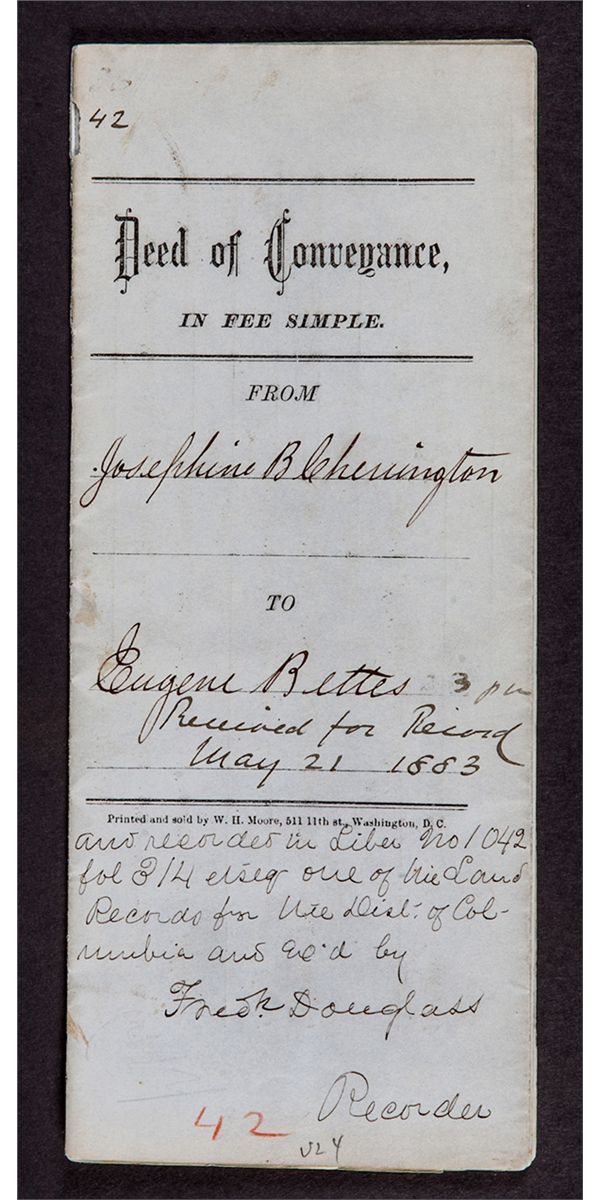 42
Deed of Conveyance,
IN FEE SIMPLE.
FROM
Josephine B Cherrington
TO
Eugene B ettes 3 pm
Received for Record
May 21 1883
Printed and sold by W. H. Moore, 511 11th st., Washington, D. C.
and recorded in Liber No 1042
fol 314 etseq one of the Land
Records for the Dist. of Col-
umbia and ex'd by
Fredk. Douglass
Recorder
42